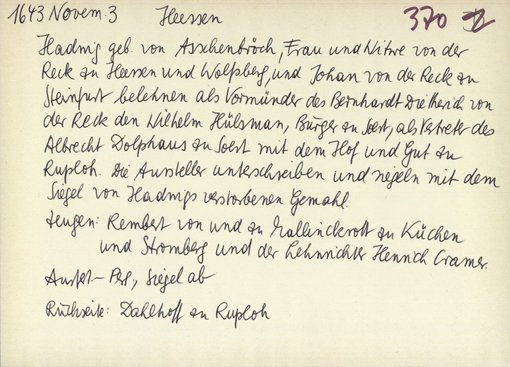 1643 Novem. 3 Heessen 370
Hadwig geb. von Asschenbröch, Frau und Witwe von der
Reck zu Heesen und Wolfsberg, und Johan von der Reck zu
Steinfurt belehnen als Vormünder des Bernhardt Dietherich von
der Reck den Wilhelm Hülsman, Bürger zu Soest, als Vertreter des
Albrecht Dolphaus zu Soest mit dem Hof und Gut zu
Ruploh. Die Aussteller unterschreiben und siegeln mit dem
Siegel von Hadwigs verstorbenen Gemahl.
Zeugen: Rembert von und zu Mallinckrott zu Küchen
und Stromberg und der Lehnrichter Henrich Cramer.
Ausf.- Perg., Siegel ab
Rückseite: Dahlhoff zu Ruploh